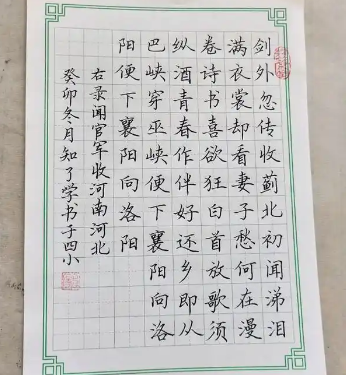 剑外忽传收蓟北初闻涕泪
满衣裳却看妻子愁何在漫
卷诗书喜欲狂白首放歌须
纵酒青春作伴好还乡即从
巴峡穿巫峡便下襄阳向洛
阳便下襄阳向洛阳
右录闻官军收河南河北
癸卯冬月知了学书于四小